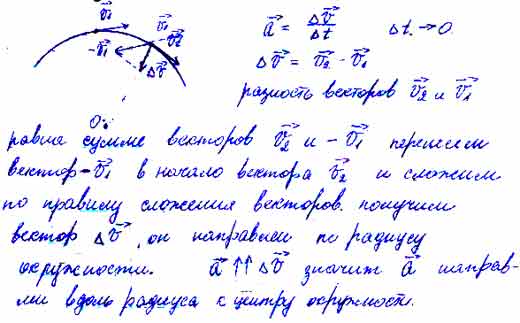 v⃗₁ v⃗₁ a⃗ = Δv⃗/Δt Δt → 0
-v⃗₁ v⃗₂ Δv⃗ = v⃗₂ - v⃗₁
Δv⃗ разность векторов v⃗₂ и v⃗₁
O
равна сумме векторов v⃗₂ и -v⃗₁ перенесем
вектор -v⃗₁ в начало вектора v⃗₂ и сложим
по правилу сложения векторов. получим
вектор Δv⃗, он направлен по радиусу
окружности. a⃗ ↑↑ Δv⃗ значит a⃗ направ-
лен вдоль радиуса к центру окружности.